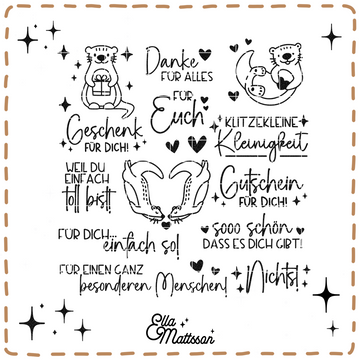 Danke
FÜR ALLES
FÜR
Euch
Geschenk
FÜR DICH!
KLITZEKLEINE
Kleinigkeit
WEIL DU
EINFACH
toll bist!
Gutschein
FÜR DICH!
FÜR DICH...
einfach so!
sooo schön
DASS ES DICH GIBT!
FÜR EINEN GANZ
besonderen Menschen!
Nichts!
Ella
Mattsson